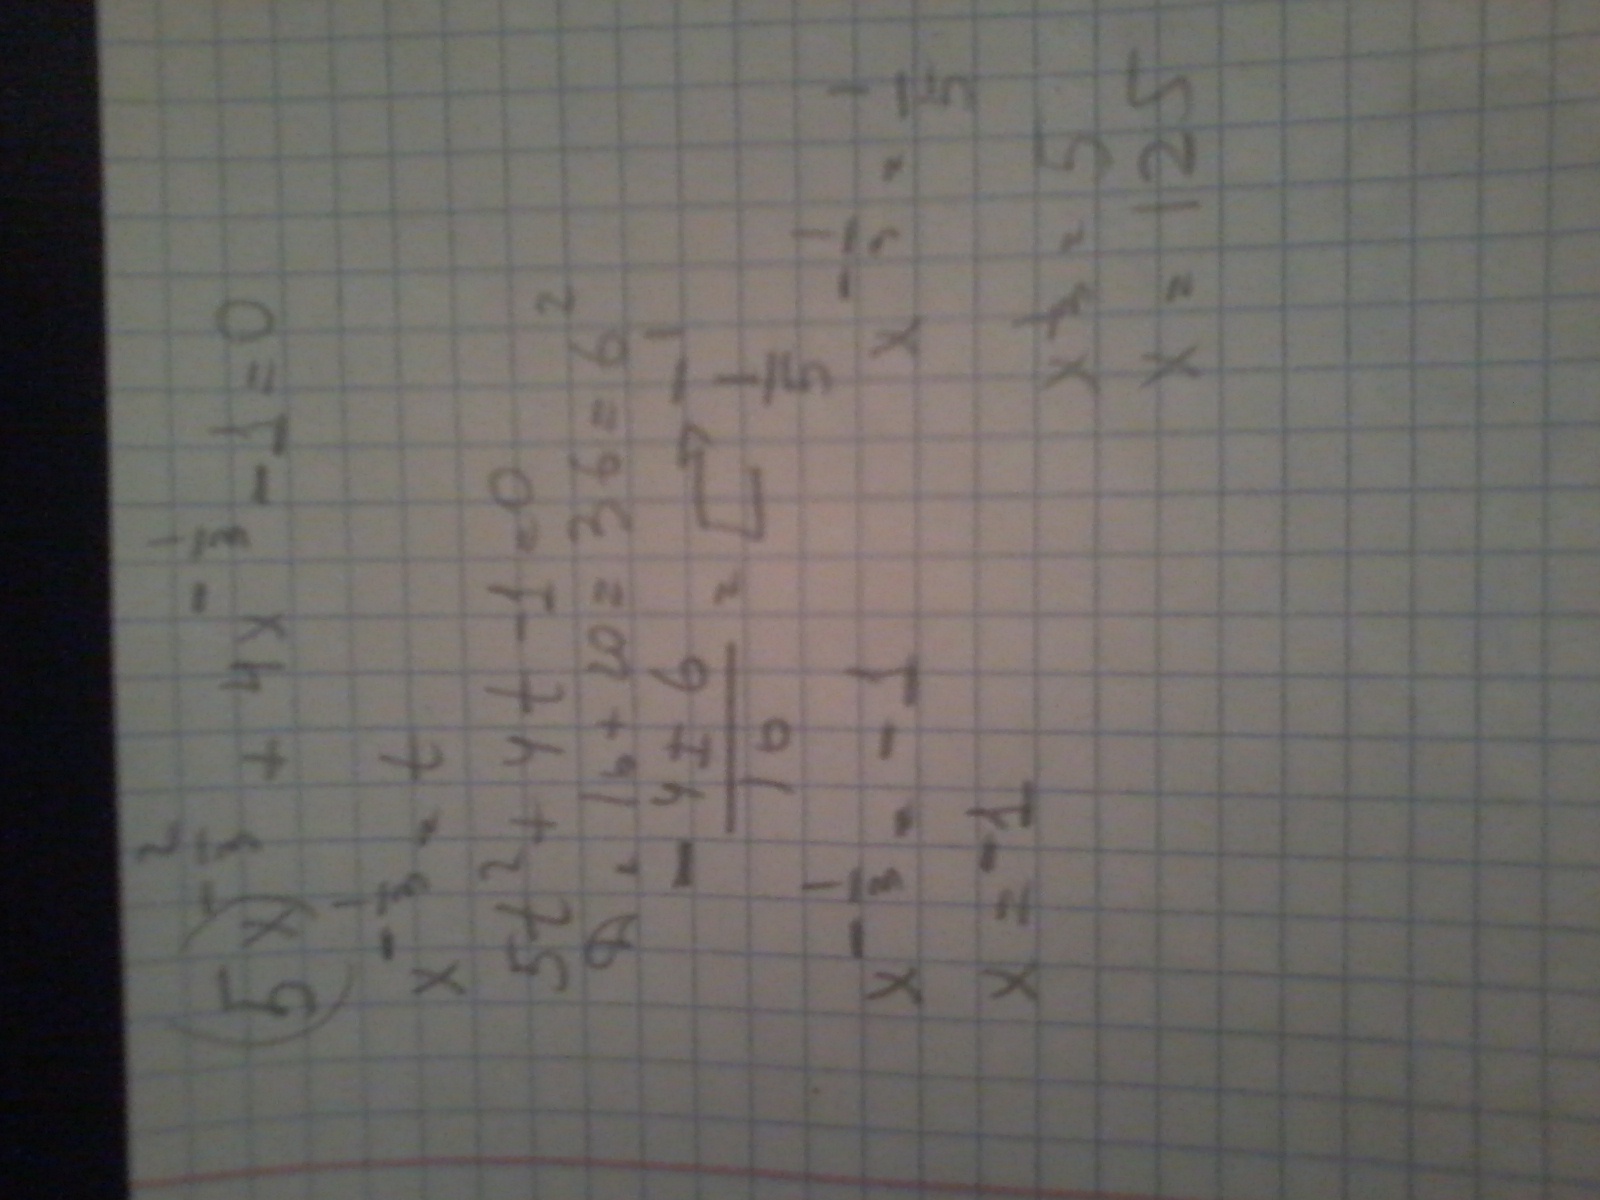 (5x)^{-2/3} + 4x^{-1/3} - 1 = 0
x^{-1/3} = t
5t^2 + 4t - 1 = 0
D = 16 + 20 = 36 = 6^2
(-4 ± 6)/10 = [ -1
1/5
x^{-1/3} = -1 x^{-1/3} = 1/5
x = -1 x^{1/3} = 5
x = 125